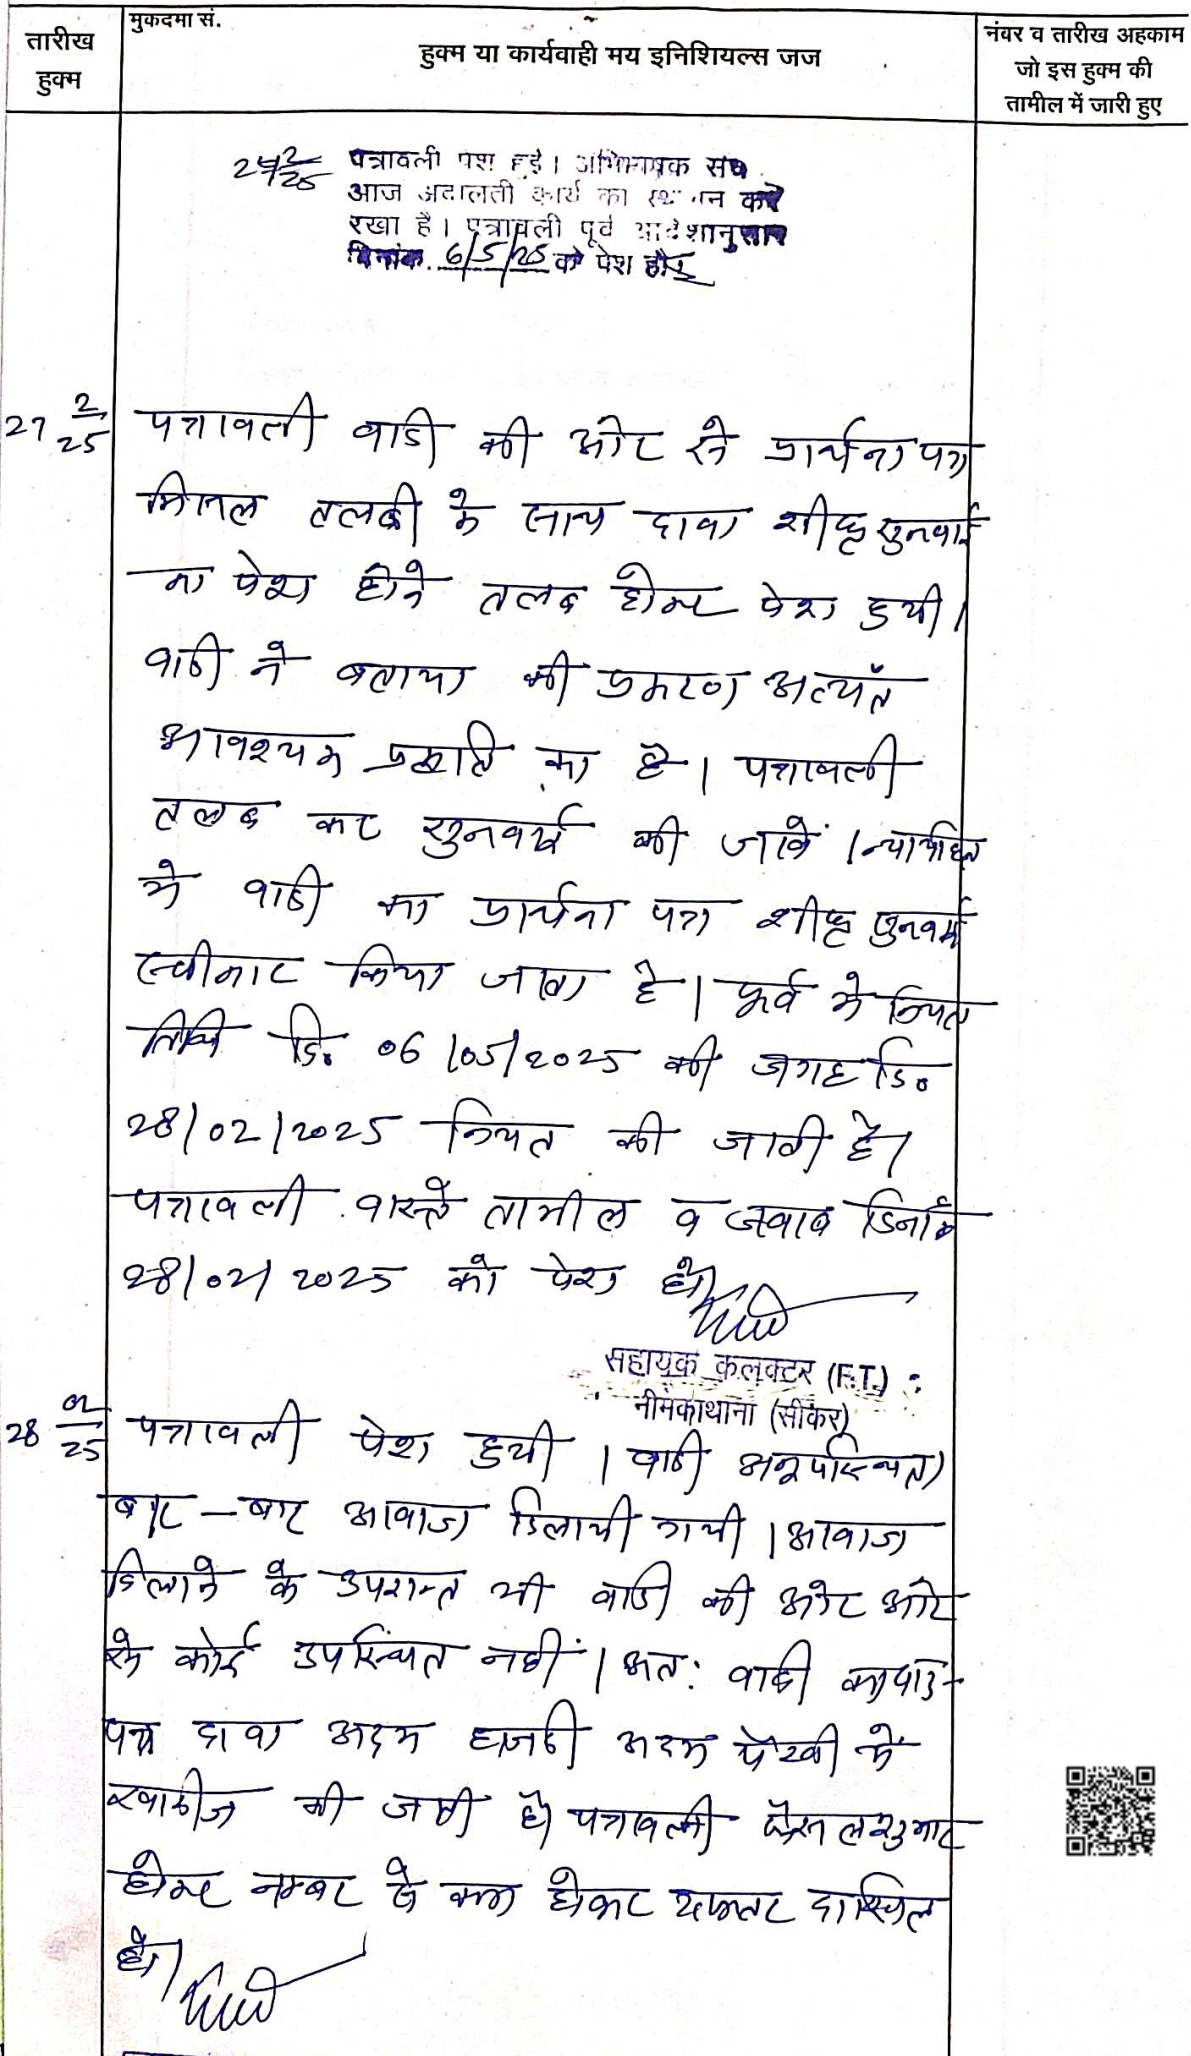 मुकदमा सं.
तारीख
हुक्म
हुक्म या कार्यवाही मय इनिशियल्स जज
नंवर व तारीख अहकाम
जो इस हुक्म की
तामील में जारी हुए
24/2/25 पत्रावली पेश हुई। अभिभाषक संघ
आज अदालती कार्य का स्थगन कर
रखा है। पत्रावली पूर्व आदेशानुसार
दिनांक 6/5/25 को पेश हो
27 2/25 पत्रावली वादी की ओर से प्रार्थना पत्र
मिसल तलबी के साथ दावा शीघ्र सुनवाई
का पेश होने तलब होकर पेश हुयी।
वादी ने बताया की प्रकरण अत्यंत
आवश्यक प्रकृति का है। पत्रावली
तलब कर सुनवाई की जावें। न्यायहित
मे वादी का प्रार्थना पत्र शीघ्र सुनवाई
स्वीकार किया जाता है। पूर्व मे नियत
तिथि दि. 06/05/2025 की जगह दि.
28/02/2025 नियत की जाती है।
पत्रावली वास्ते तामील व जवाब दिनांक
28/02/2025 को पेश हो।
सहायक कलक्टर (F.T.)
नीमकाथाना (सीकर)
28 02/25 पत्रावली पेश हुयी। वादी अनुपस्थित।
बार-बार आवाज दिलायी गयी। आवाज
दिलाने के उपरान्त भी वादी की ओर
से कोई उपस्थित नहीं। अत: वादी का वाद
पत्र दावा अदम हाजरी अदम पैरवी में
खारीज की जाती है। पत्रावली फैसल शुमार
होकर नम्बर से कम होकर दफ्तर दाखिल
हो।